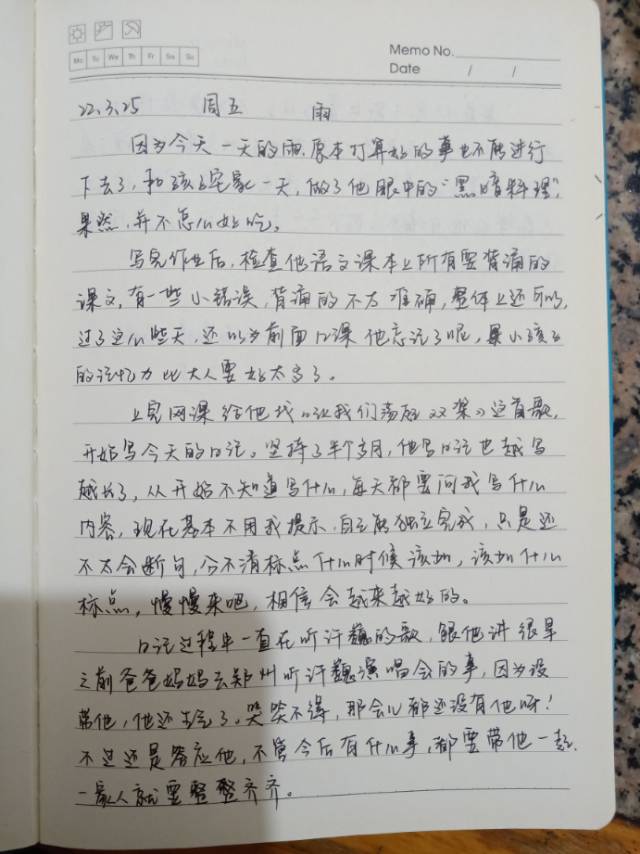 Mo Tu We Th Fr Sa Su
Memo No.
Date / /
22.3.25 周五 雨
因为今天一天的雨,原本打算好的事也不能进行
下去了,和孩子宅家一天,做了他眼中的“黑暗料理”,
果然,并不怎么好吃。
写完作业后,检查他语文课本上所有要背诵的
课文,有一些小错误,背诵的不太准确,整体上还可以,
过了这么些天,还以为前面几课他忘记了呢,果小孩子
的记忆力比大人要好太多了。
上完网课给他找《让我们荡起双桨》这首歌,
开始写今天的日记。坚持了半个多月,他写日记也越写
越好了,从开始不知道写什么,每天都要问我写什么
内容,现在基本不用我提示,自己能独立完成,只是还
不太会断句,分不清标点什么时候该加,该加什么
标点,慢慢来吧,相信会越来越好的。
日记过程中一直在听许巍的歌,跟他讲很早
之前爸爸妈妈去郑州听许巍演唱会的事,因为没
带他,他还生气了。哭笑不得,那会儿都还没有他呀!
不过还是答应他,不管今后有什么事,都要带他一起,
一家人就要整整齐齐。